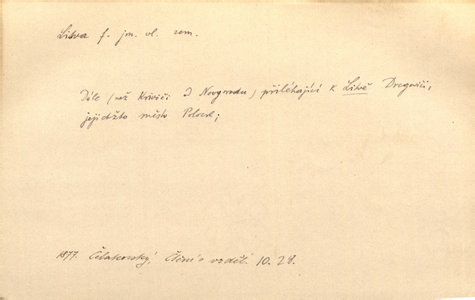 Litva f. jm. vl. zem.
Dále (než Kriviči I Novgorodu) přiléhající k Litvě Dregoviči,
jejichžto město Polock;
1877. Čelakovský, Čtení o vzděl. 10. 28.